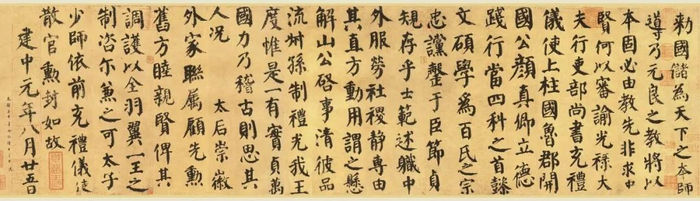 勅國儲為天下之本師
導乃元良之教將以
本固必由教先非求中
賢何以審諭光祿大
夫行吏部尚書充禮
儀使上柱國魯郡開
國公顏真卿立德
踐行當四科之首懿
文碩學爲百氏之宗
忠讜罄于臣節貞
規存乎士範述職中
外服勞社稷靜專由
其直方動用謂之懸
解山公啓事清彼品
流叔孫制禮光我王
度惟是一有實貞萬
國力乃稽古則思其
人況 太后崇徽
外家聯属顧先勲
舊方睦親賢俾其
調護以全羽翼一王之
制咨尔兼之可太子
少師依前充禮儀使
散官勲封如故
建中元年八月廿五日